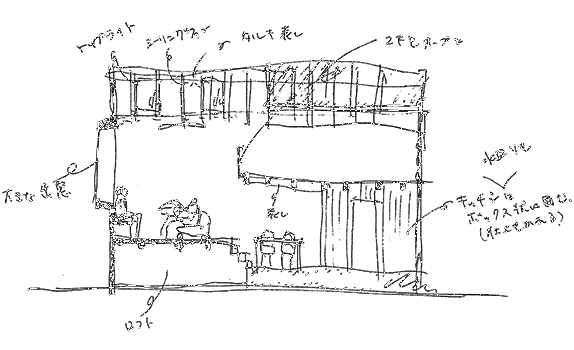 トップライト
シーリングファン
タルキ表し
2Fもオープン
大きな出窓
表し
水廻りも
キッチンは
ボックス状に囲む。
(仕上をかえる)
ロフト